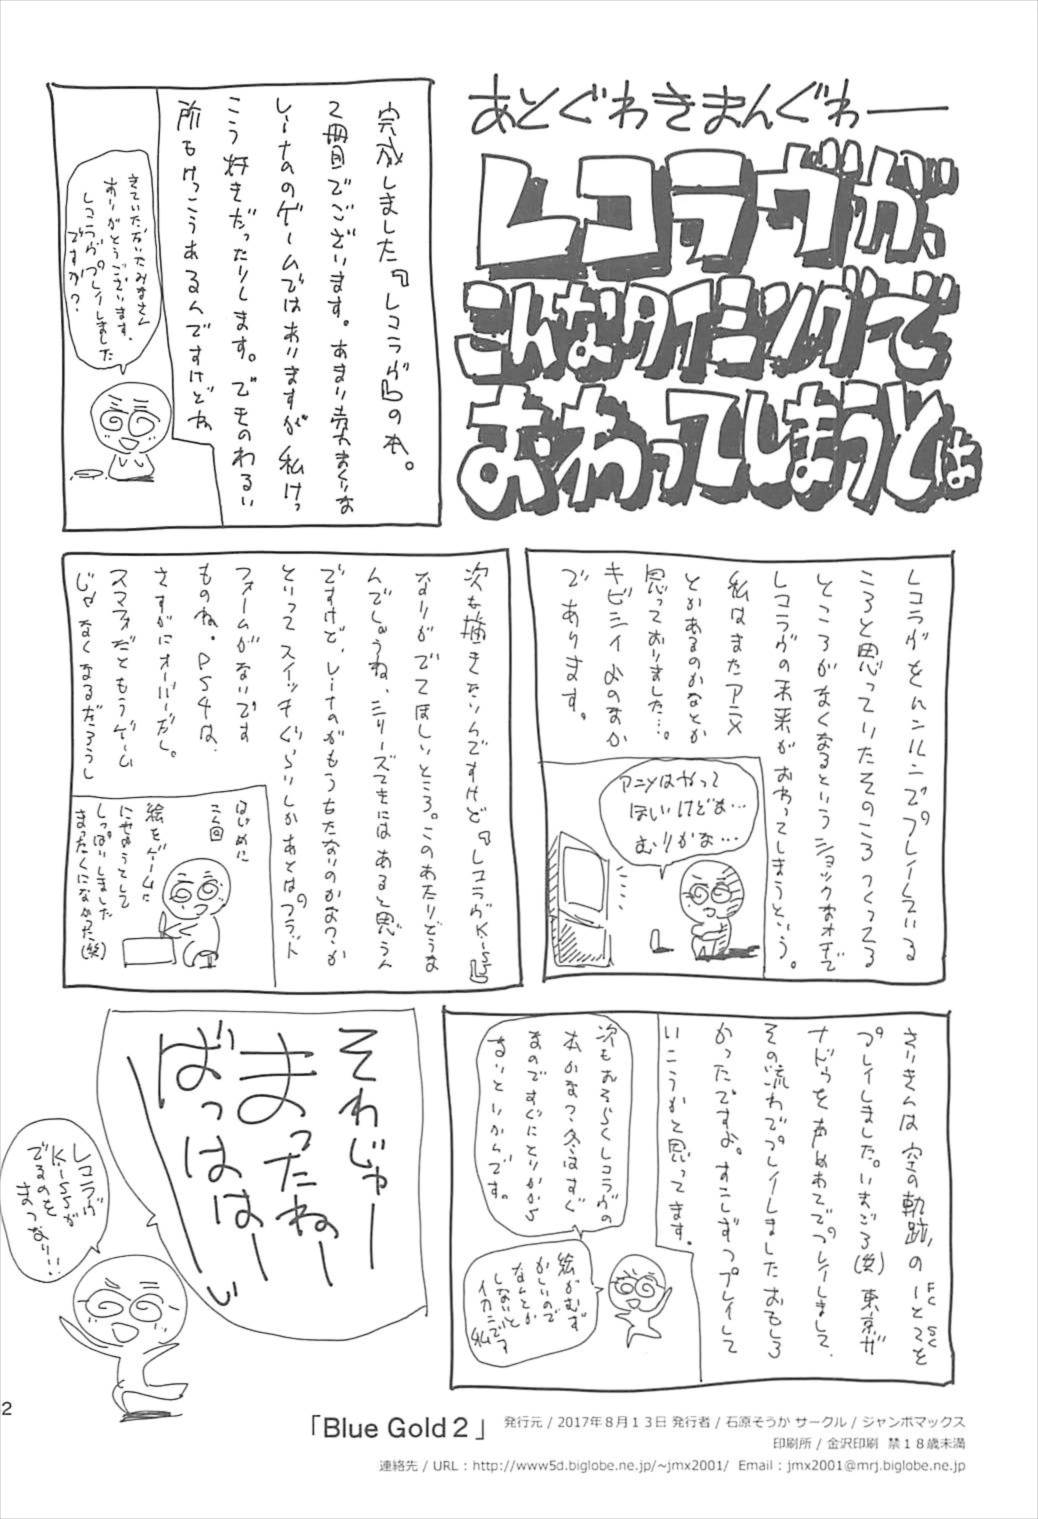 あとぐわきまんぐわー
レコラヴが、
こんなタイミングで
おわってしまうとは
完成しました『レコラヴ』の本。
2冊目でございます。あまり売れなくなな
こう好きだったりします。でもそのわるい
所もけっこうあるんですけどね
きていただいたみなさん
ありがとうございます、
レコラヴプレイしました
ですか?
レコラヴをハンルニでプレイしている
ころと思っていたそのころつくってる
ところがなくなるというショックなオチで
レコラヴの未来がおわってしまうという。
私はまたアニメ
とかあるのかなとか
思っておりました…。
キビシイよのなか
であります。
アニメはやって
ほしいけどな…
むりかな…
次も描きたいんですけど『レコラヴKiss』
なりがでてほしいところ。このあたりどうな
んでしょうね、シリーズてきにはあると思うん
といってスイッチぐらいしかあとはプラット
フォームがないです
ものね。PS4は、
さすがにオーバーだし。
スマフォだともうゲーム
じゃなくなるだろうし
はじめに
今回
絵をゲームに
にせようとして
しっぱいしました
まったくになかった(笑)
さいきんは空の軌跡、のFCとSCとを
プレイしました。いまごろ(笑)東京ザ
ナドゥをきわめてプレイしまして、
その流れでプレイしましたおもしろ
かったですよ。すこしずつプレイして
いこうかと思ってます。
次もおそらくレコラヴの
本かなつ。冬はすぐ
なのですぐにとりかから
ないといかんです。
絵がむず
かしいので
なんとか
しないと
イカンです
私
それじゃー
まったねー
ばっはは~い
レコラヴ
Kissが
でるのを
まつなり!!
2
「Blue Gold 2」 発行元 / 2017年8月13日 発行者 / 石原そうか サークル / ジャンボマックス
印刷所 / 金沢印刷 禁18歳未満
連絡先 / URL : http://www5d.biglobe.ne.jp/~jmx2001/ Email : jmx2001@mrj.biglobe.ne.jp